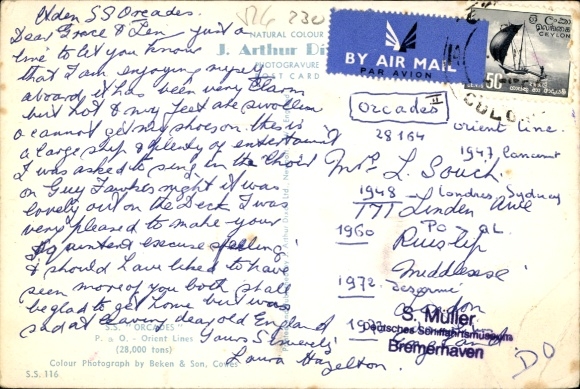 Aden SS Orcades.
Dear Grace & Len just a
line to let you know
that I am enjoying myself
aboard it has been very Warm
but hot & my feet are swollen
& cannot get my shoes on this is
a large ship & plenty of entertainment
I was asked to sing in the Choir
on Guy Fawkes night it was
lovely out on the Deck I was
very pleased to make your
excuse spelling
I should have liked to have
seen more of you both shall
be glad to get home but was
sad at leaving dear old England
Yours Sincerely
Laura Hazelton.
NATURAL COLOUR
J. Arthur Di
PHOTOGRAVURE
POST CARD
S.S. "ORCADES"
P. & O. - Orient Lines
(28,000 tons)
Colour Photograph by Beken & Son, Cowes
S.S. 116
BY AIR MAIL
PAR AVION
CEYLON
50
COLO
Orcades II
28 164
Orient Line.
1947
Mrs L. Souch.
1948 London Sydney
171 Linden Ave
1960 PO - OL.
Ruislip
Middlesex
1972.
London
England
S. Müller
Deutsches Schiffahrtsmuseum
Bremerhaven
DO